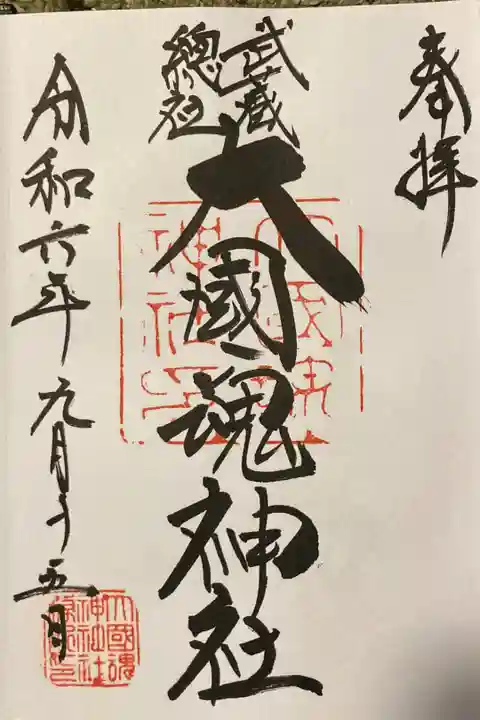 奉拝
武蔵
総社
大國魂神社
令和六年九月十五日
大國魂
神社